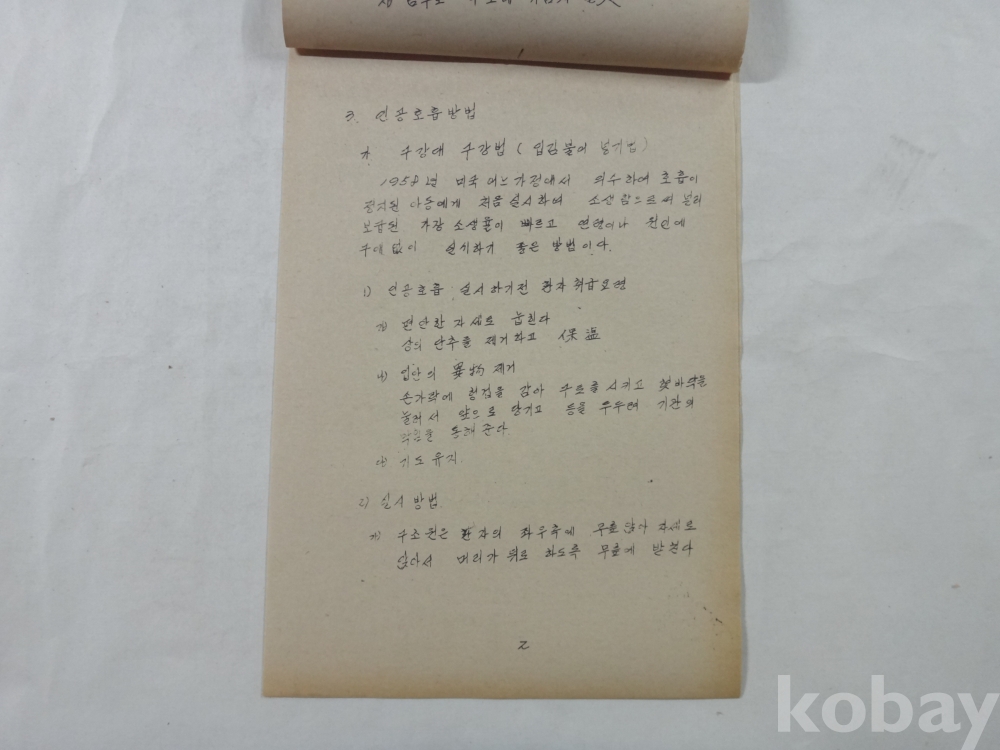 3. 인공호흡방법
가. 구강대 구강법 (입김불어 넣기법)
1958년 미국 어느가정에서 의수하여 호흡이
정지된 아동에게 처음 실시하여 소생함으로써 널리
보급된 가장 소생율이 빠르고 연령이나 원인에
구애없이 실시하기 좋은 방법이다.
1) 인공호흡 실시하기전 환자취급요령
가) 편안한 자세로 눕힌다
상의 단추를 제거하고 保溫
나) 입안의 異物 제거
손가락에 헝겊을 감아 구토를 시키고 혓바닥을
눌러서 앞으로 당기고 등을 두두려 기관의
막힘을 통해준다.
다) 기도유지.
2) 실시방법.
가) 구조원은 환자의 좌우측에 무릎앉아 자세로
앉아서 머리가 뒤로 하도록 무릎에 받친다
2
kobay